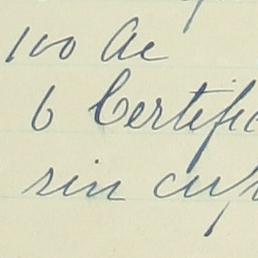 100 Ac
6 Certific
sin cup